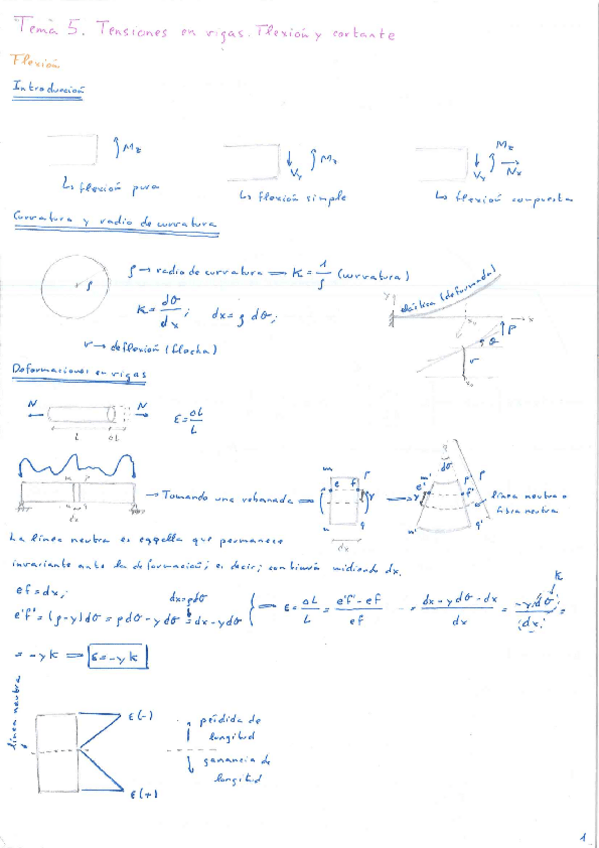 Tema 5. Tensiones en vigas. Flexión y cortante
Flexión
Introducción
Mz
Vy Mz
Mz
Vy Nx
↳ flexión pura
↳ flexión simple
↳ flexión compuesta
Curvatura y radio de curvatura
ρ
ρ → radio de curvatura ⟹ K = 1/ρ (curvatura)
K = dθ/dx ; dx = ρ dθ;
v → deflexión (flecha)
y
elástica (deformada)
x₀
x
P
θ
v
x₀
Deformaciones en vigas
N N
L ΔL
ε = ΔL/L
m p
n q
dx
→ Tomando una rebanada ⟹
m p
e f
y
n q
dx
dθ
m' p'
e' f'
y
n' q'
ρ
línea neutra o
fibra neutra
La línea neutra es aquella que permanece
invariante ante la deformación; es decir; continúa midiendo dx.
ef = dx;
dx = ρdθ
e'f' = (ρ-y)dθ = ρdθ - ydθ = dx - ydθ
⟹ ε = ΔL/L = e'f' - ef / ef = dx - ydθ - dx / dx = -y dθ / dx =
K
= -yK ⟹ ε = -yK
línea neutra
ε(-)
ε(+)
↑ pérdida de
longitud
↓ ganancia de
longitud
1